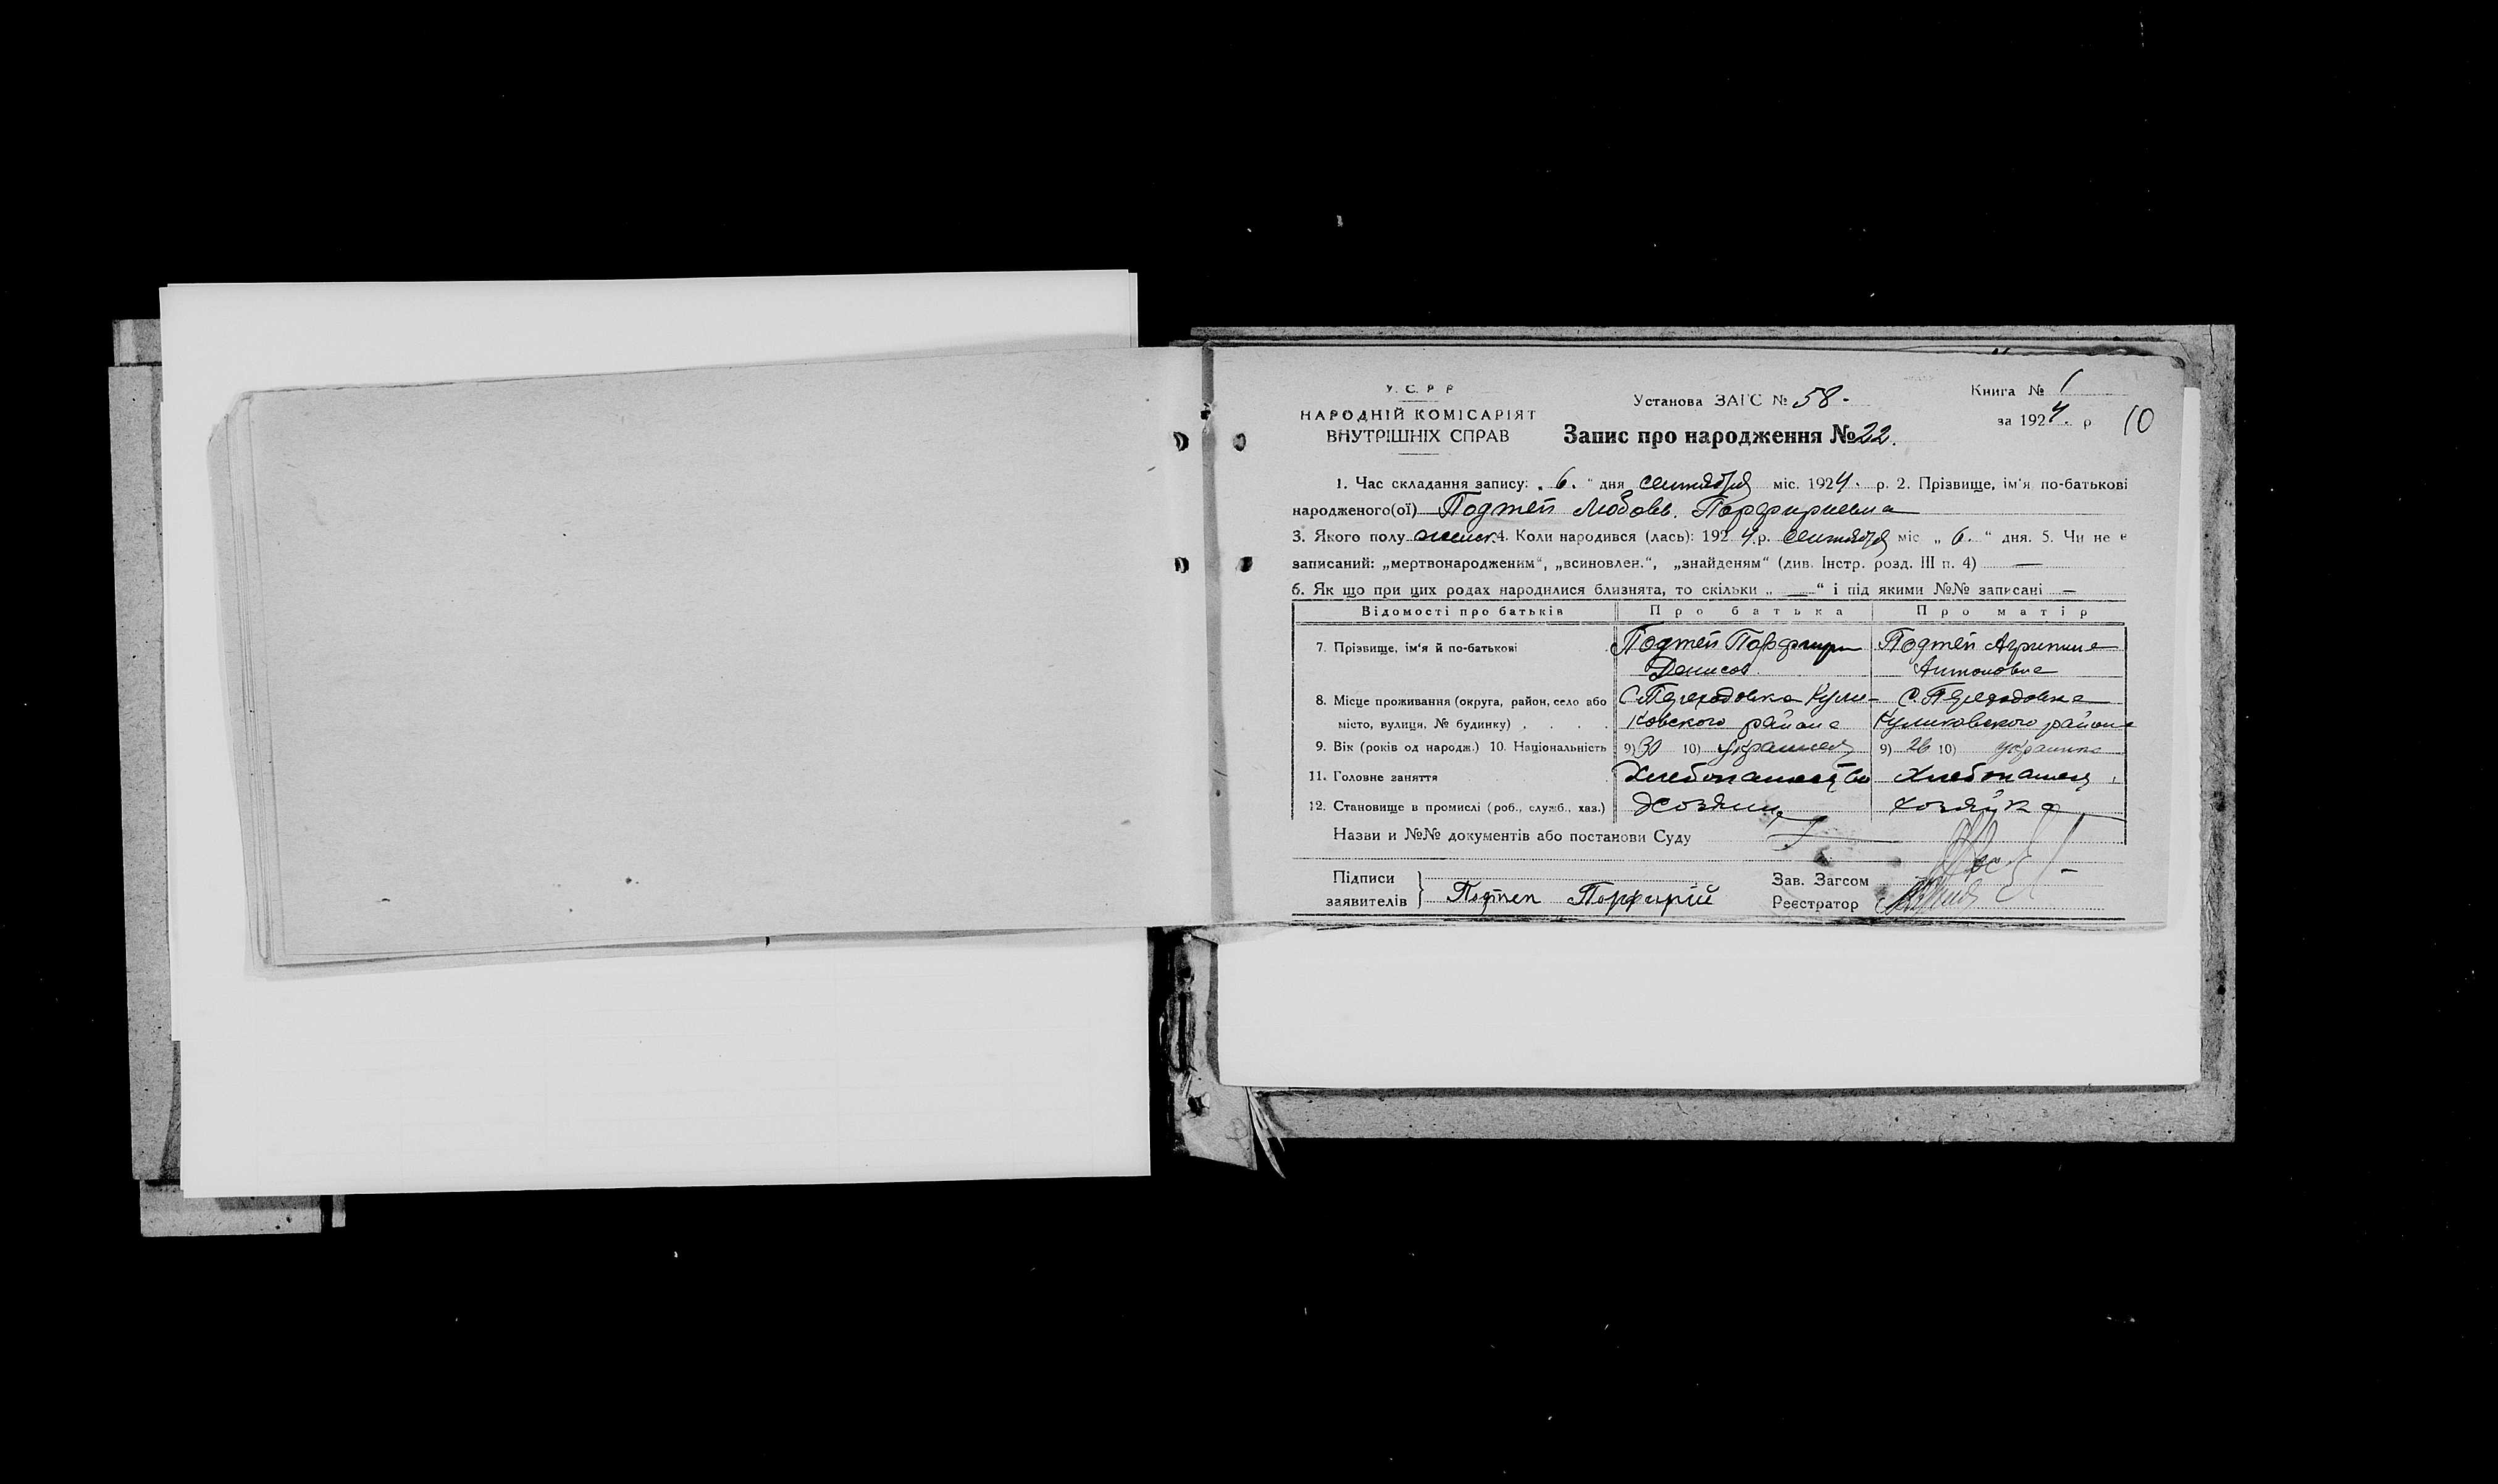 У. С. Р. Р
НАРОДНІЙ КОМІСАРІЯТ
ВНУТРІШНІХ СПРАВ
Установа ЗАГС № 58.
Запис про народження № 22.
Книга № 1
за 1924. р
10
1. Час складання запису: „ 6. “ дня сентября міс. 1924. р. 2. Прізвище, ім'я, по-батькові
народженого(ої) Подтеп Любовь. Порфириевна
3. Якого полу женск. 4. Коли народився (лась): 1924 р. сентября міс „ 6. “ дня. 5. Чи не є
записаний: „мертвонародженим“, „всиновлен.“, „знайденям“ (див. Інстр. розд. III п. 4) —
6. Як що при цих родах народилися близнята, то скільки „ — “ і під якими №№ записані —
Відомості про батьків Про батька Про матір
7. Прізвище, ім'я й по-батькові Подтеп Порфири Подтеп Агрипина
Денисов. Антоновна
8. Місце проживання (округа, район, село або С. Переходовка Кули- С. Переходовка
місто, вулиця, № будинку) . . . . ковского района Куликовского района
9. Вік (років од народж.) 10. Національність 9) 30 10) украинец 9) 26 10) украинка
11. Головне заняття Хлебопашество Хлебопашец
12. Становище в промислі (роб., служб., хаз.) Хозяин хозяйка
Назви и №№ документів або постанови Суду
Підписи Зав. Загсом
заявителів Подтеп Порфирій Реєстратор